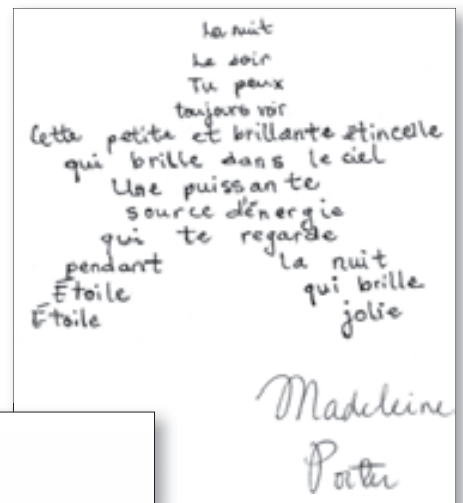 La nuit
Le soir
Tu peux
toujours voir
Cette petite et brillante étincelle
qui brille dans le ciel
Une puissante
source d'énergie
qui te regarde
pendant la nuit
Étoile qui brille
Étoile jolie
Madeleine
Porter